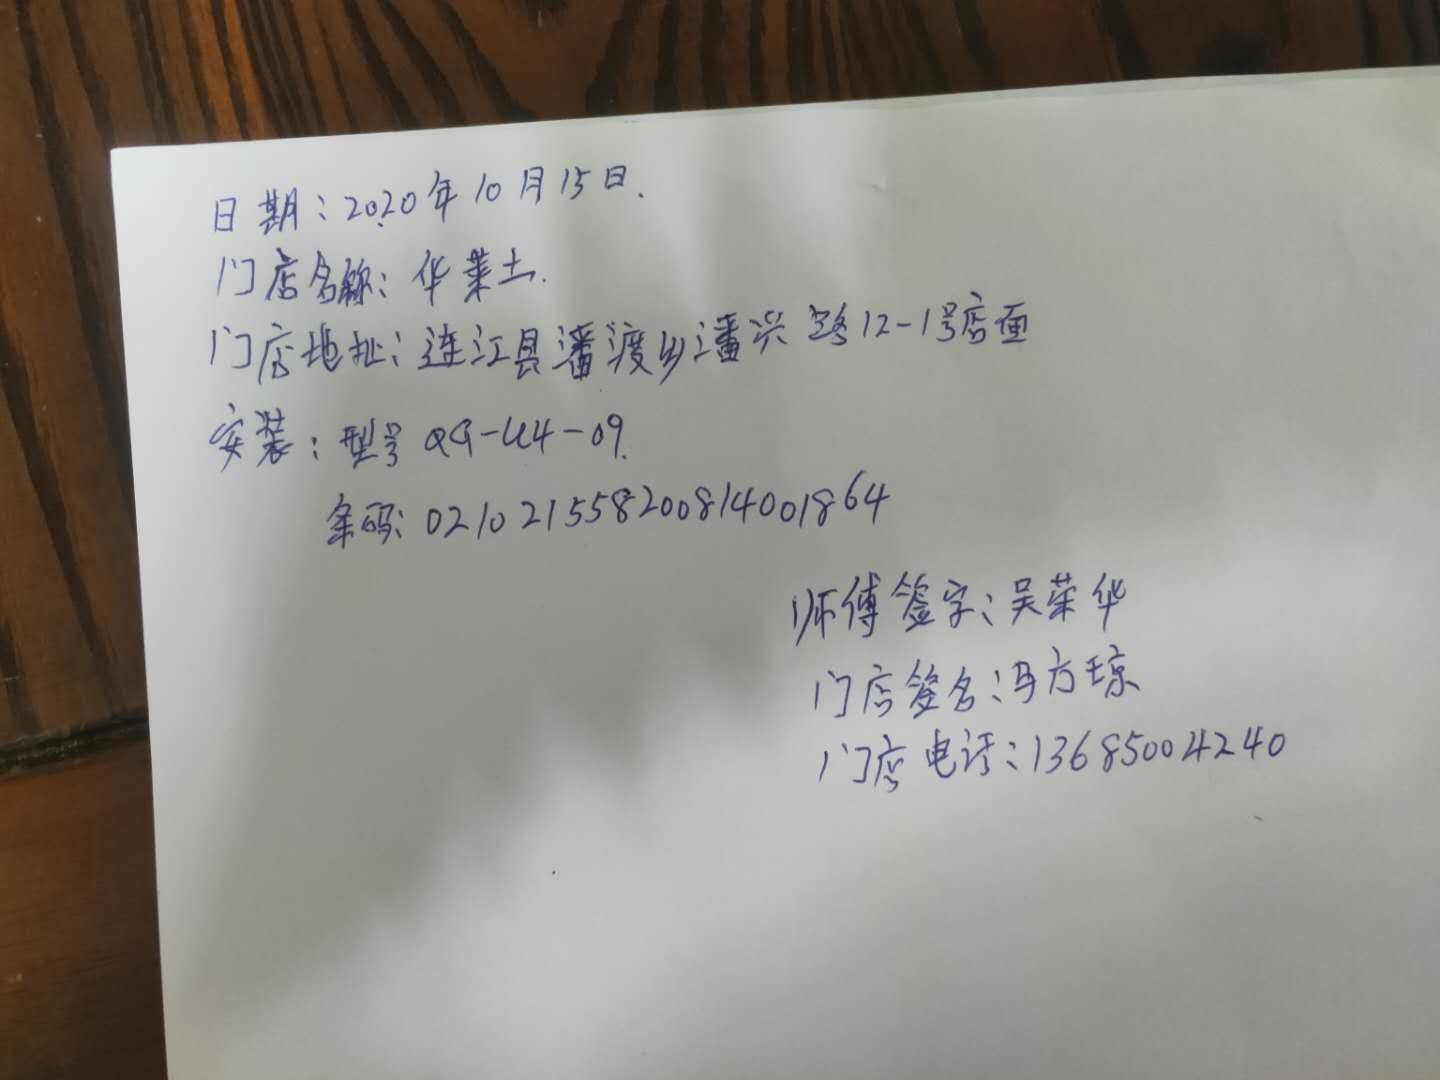 日期：2020年10月15日.
门店名称：华莱士.
门店地址：连江县潘渡乡潘兴路12-1号店面
安装：型号QG-U4-09.
条码：021021558200814001864
师傅签字：吴荣华
门店签名：冯方琼
门店电话：13685004240